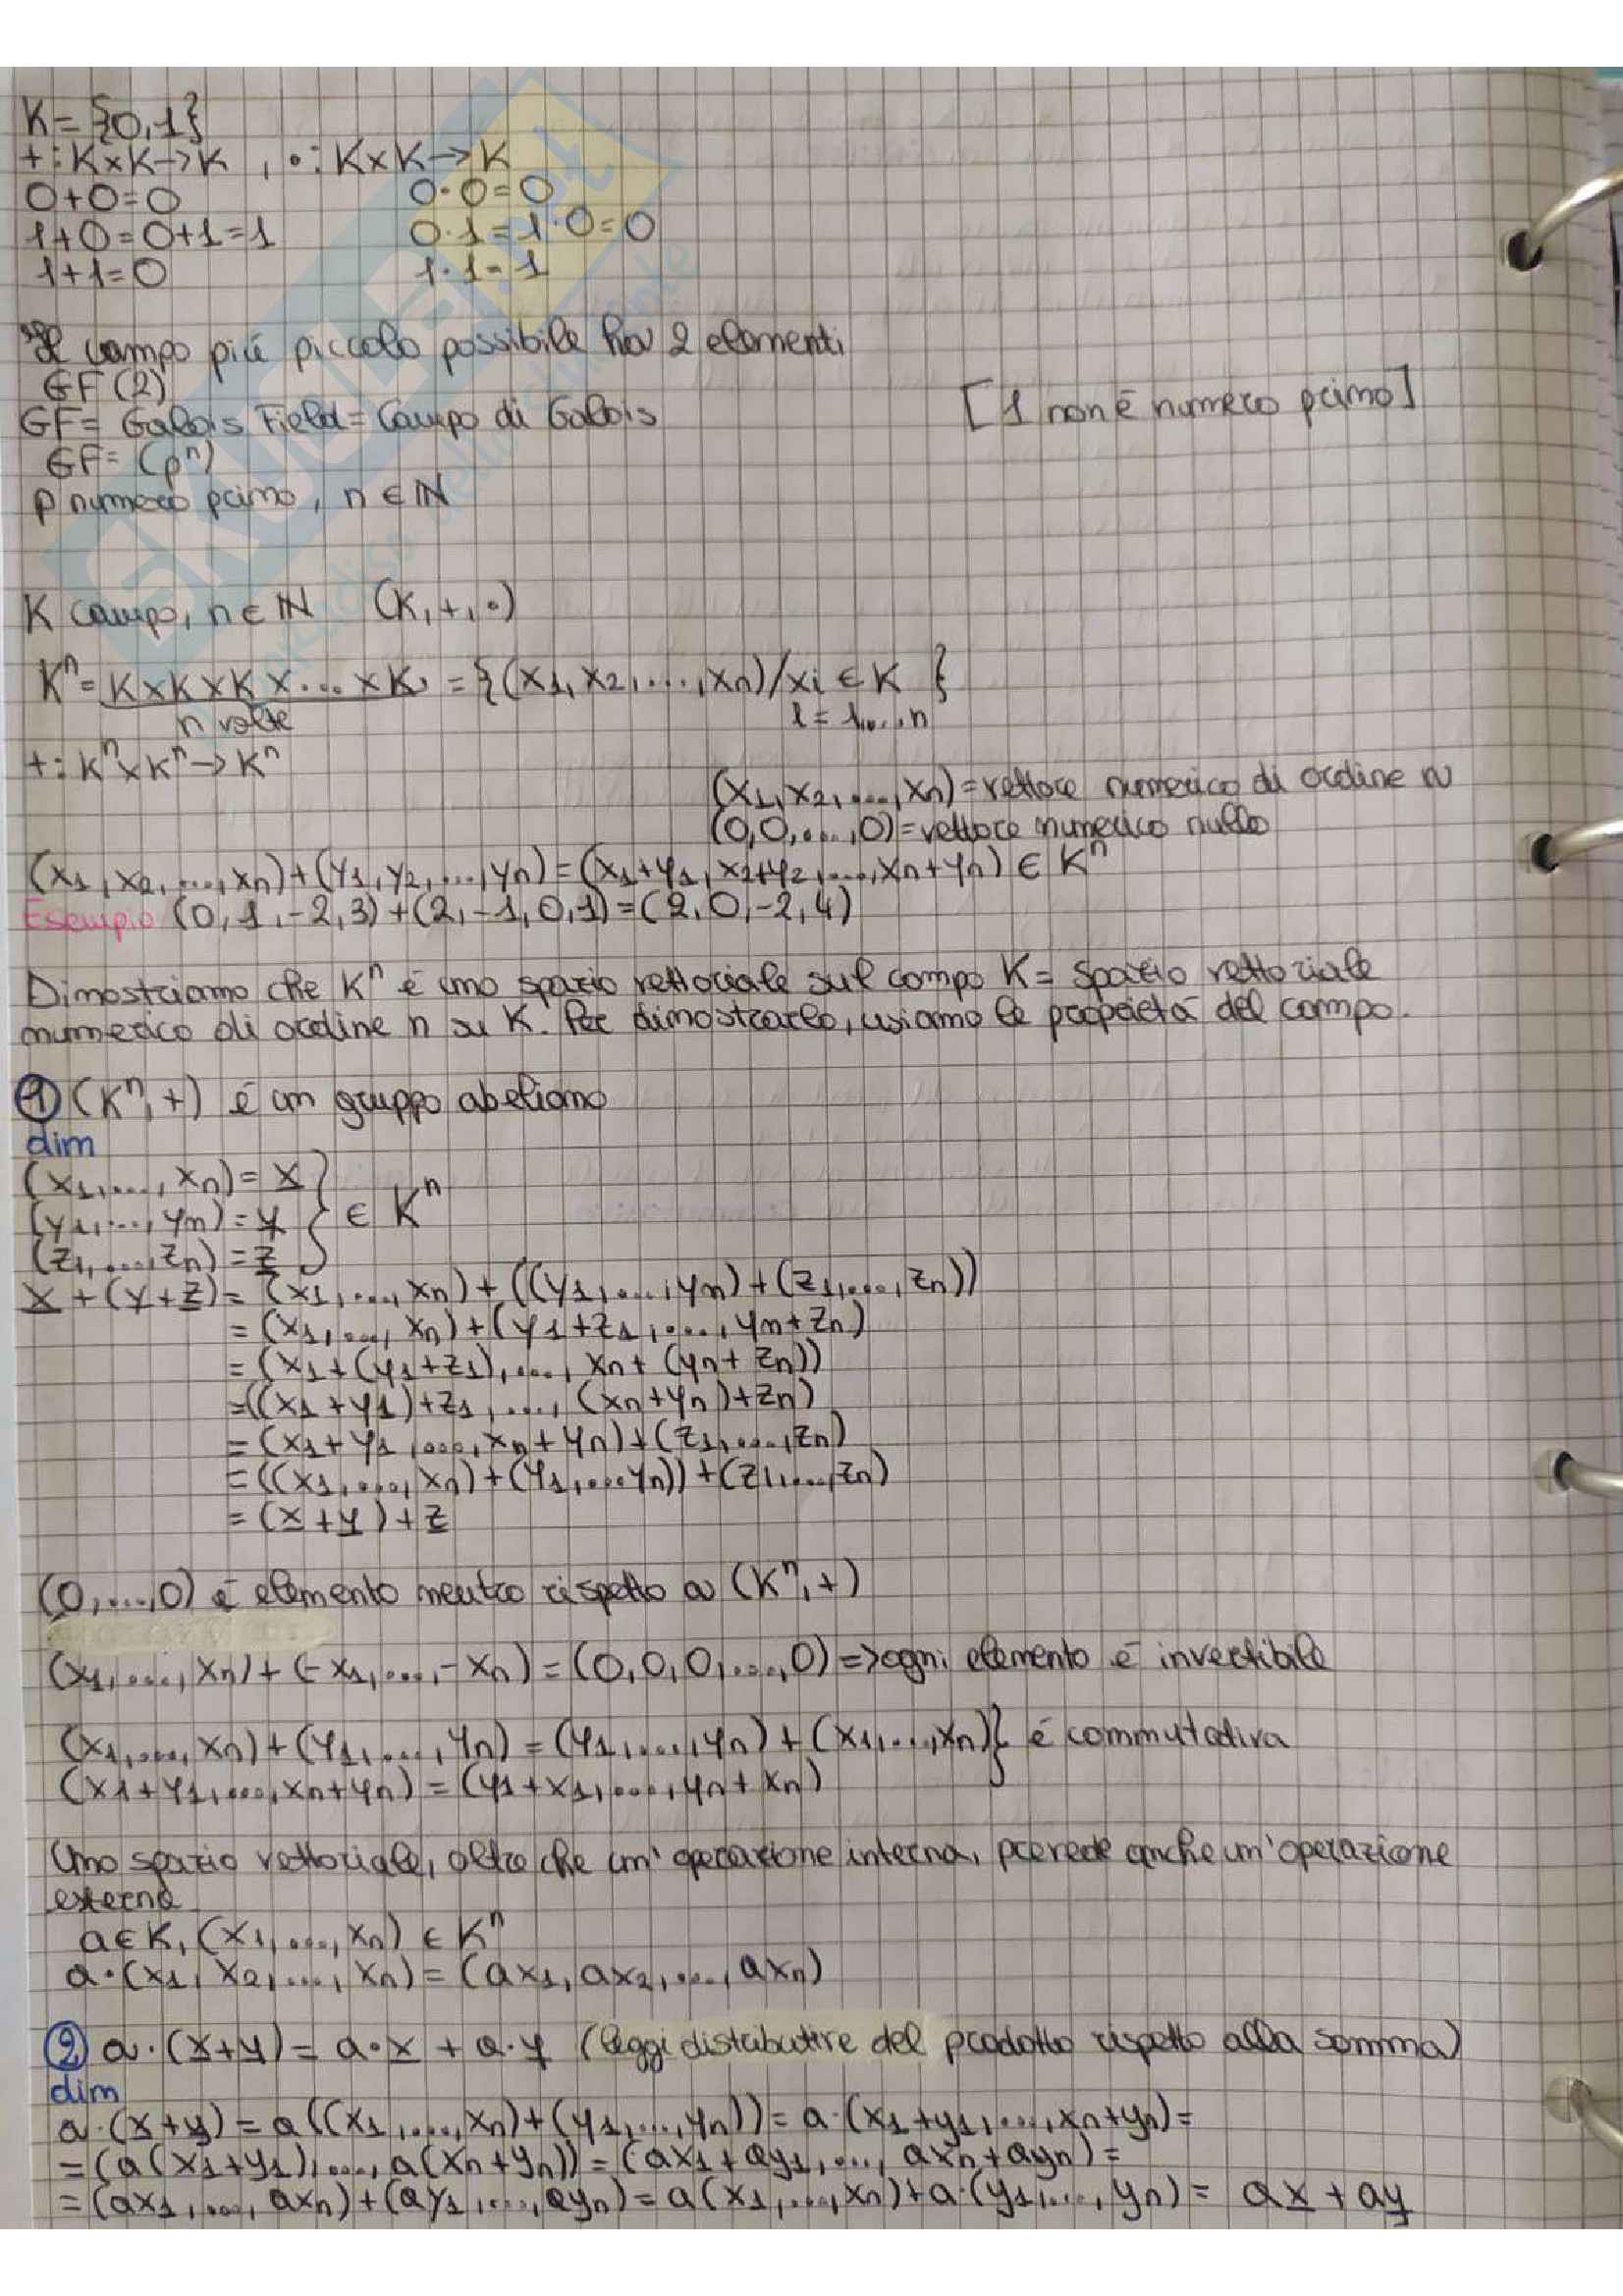 K={0,1}
+:K×K→K , •:K×K→K
0+0=0 0·0=0
1+0=0+1=1 0·1=1·0=0
1+1=0 1·1=1
Il campo piú piccolo possibile ha 2 elementi
GF(2)
[1 non é numero primo]
GF= Galois Field= Campo di Galois
GF= (pⁿ)
p numero primo, n∈ℕ
K campo, n∈ℕ (K,+,•)
Kⁿ= K×K×K×...×K = {(x1,x2,...,xn)/xi∈K }
n volte i=1,..,n
+:Kⁿ×Kⁿ→Kⁿ
(x1,x2,...,xn)=vettore numerico di ordine n
(0,0,...,0)=vettore numerico nullo
(x1,x2,...,xn)+(y1,y2,...,yn)=(x1+y1,x2+y2,...,xn+yn)∈Kⁿ
Esempio (0,1,-2,3)+(2,-1,0,1)=(2,0,-2,4)
Dimostriamo che Kⁿ é uno spazio vettoriale sul campo K= spazio vettoriale
numerico di ordine n su K. Per dimostrarlo, usiamo le proprietá del campo.
① (Kⁿ,+) é un gruppo abeliano
dim
(x1,...,xn)=x
(y1,...,yn)=y } ∈ Kⁿ
(z1,...,zn)=z
x+(y+z)= (x1,...,xn)+((y1,...,yn)+(z1,...,zn))
=(x1,...,xn)+(y1+z1,...,yn+zn)
=(x1+(y1+z1),...,xn+(yn+zn))
=((x1+y1)+z1,...,(xn+yn)+zn)
=(x1+y1,...,xn+yn)+(z1,...,zn)
=((x1,...,xn)+(y1,...yn))+(z1,...,zn)
=(x+y)+z
(0,...,0) é elemento neutro rispetto a (Kⁿ,+)
(x1,...,xn)+(-x1,...,-xn)=(0,0,0,...,0)=>ogni elemento é invertibile
(x1,...,xn)+(y1,...,yn)=(y1,...,yn)+(x1,...,xn)} é commutativa
(x1+y1,...,xn+yn)=(y1+x1,...,yn+xn)
Uno spazio vettoriale, oltre che un'operazione interna, prevede anche un'operazione
esterna
a∈K,(x1,...,xn)∈Kⁿ
a·(x1,x2,...,xn)=(ax1,ax2,...,axn)
② a·(x+y)=a·x+a·y (leggi distributive del prodotto rispetto alla somma)
dim
a·(x+y)=a((x1,...,xn)+(y1,...,yn))=a·(x1+y1,...,xn+yn)=
=(a(x1+y1),...,a(xn+yn))=(ax1+ay1,...,axn+ayn)=
=(ax1,...,axn)+(ay1,...,ayn)=a(x1,...,xn)+a·(y1,...,yn)= ax+ay